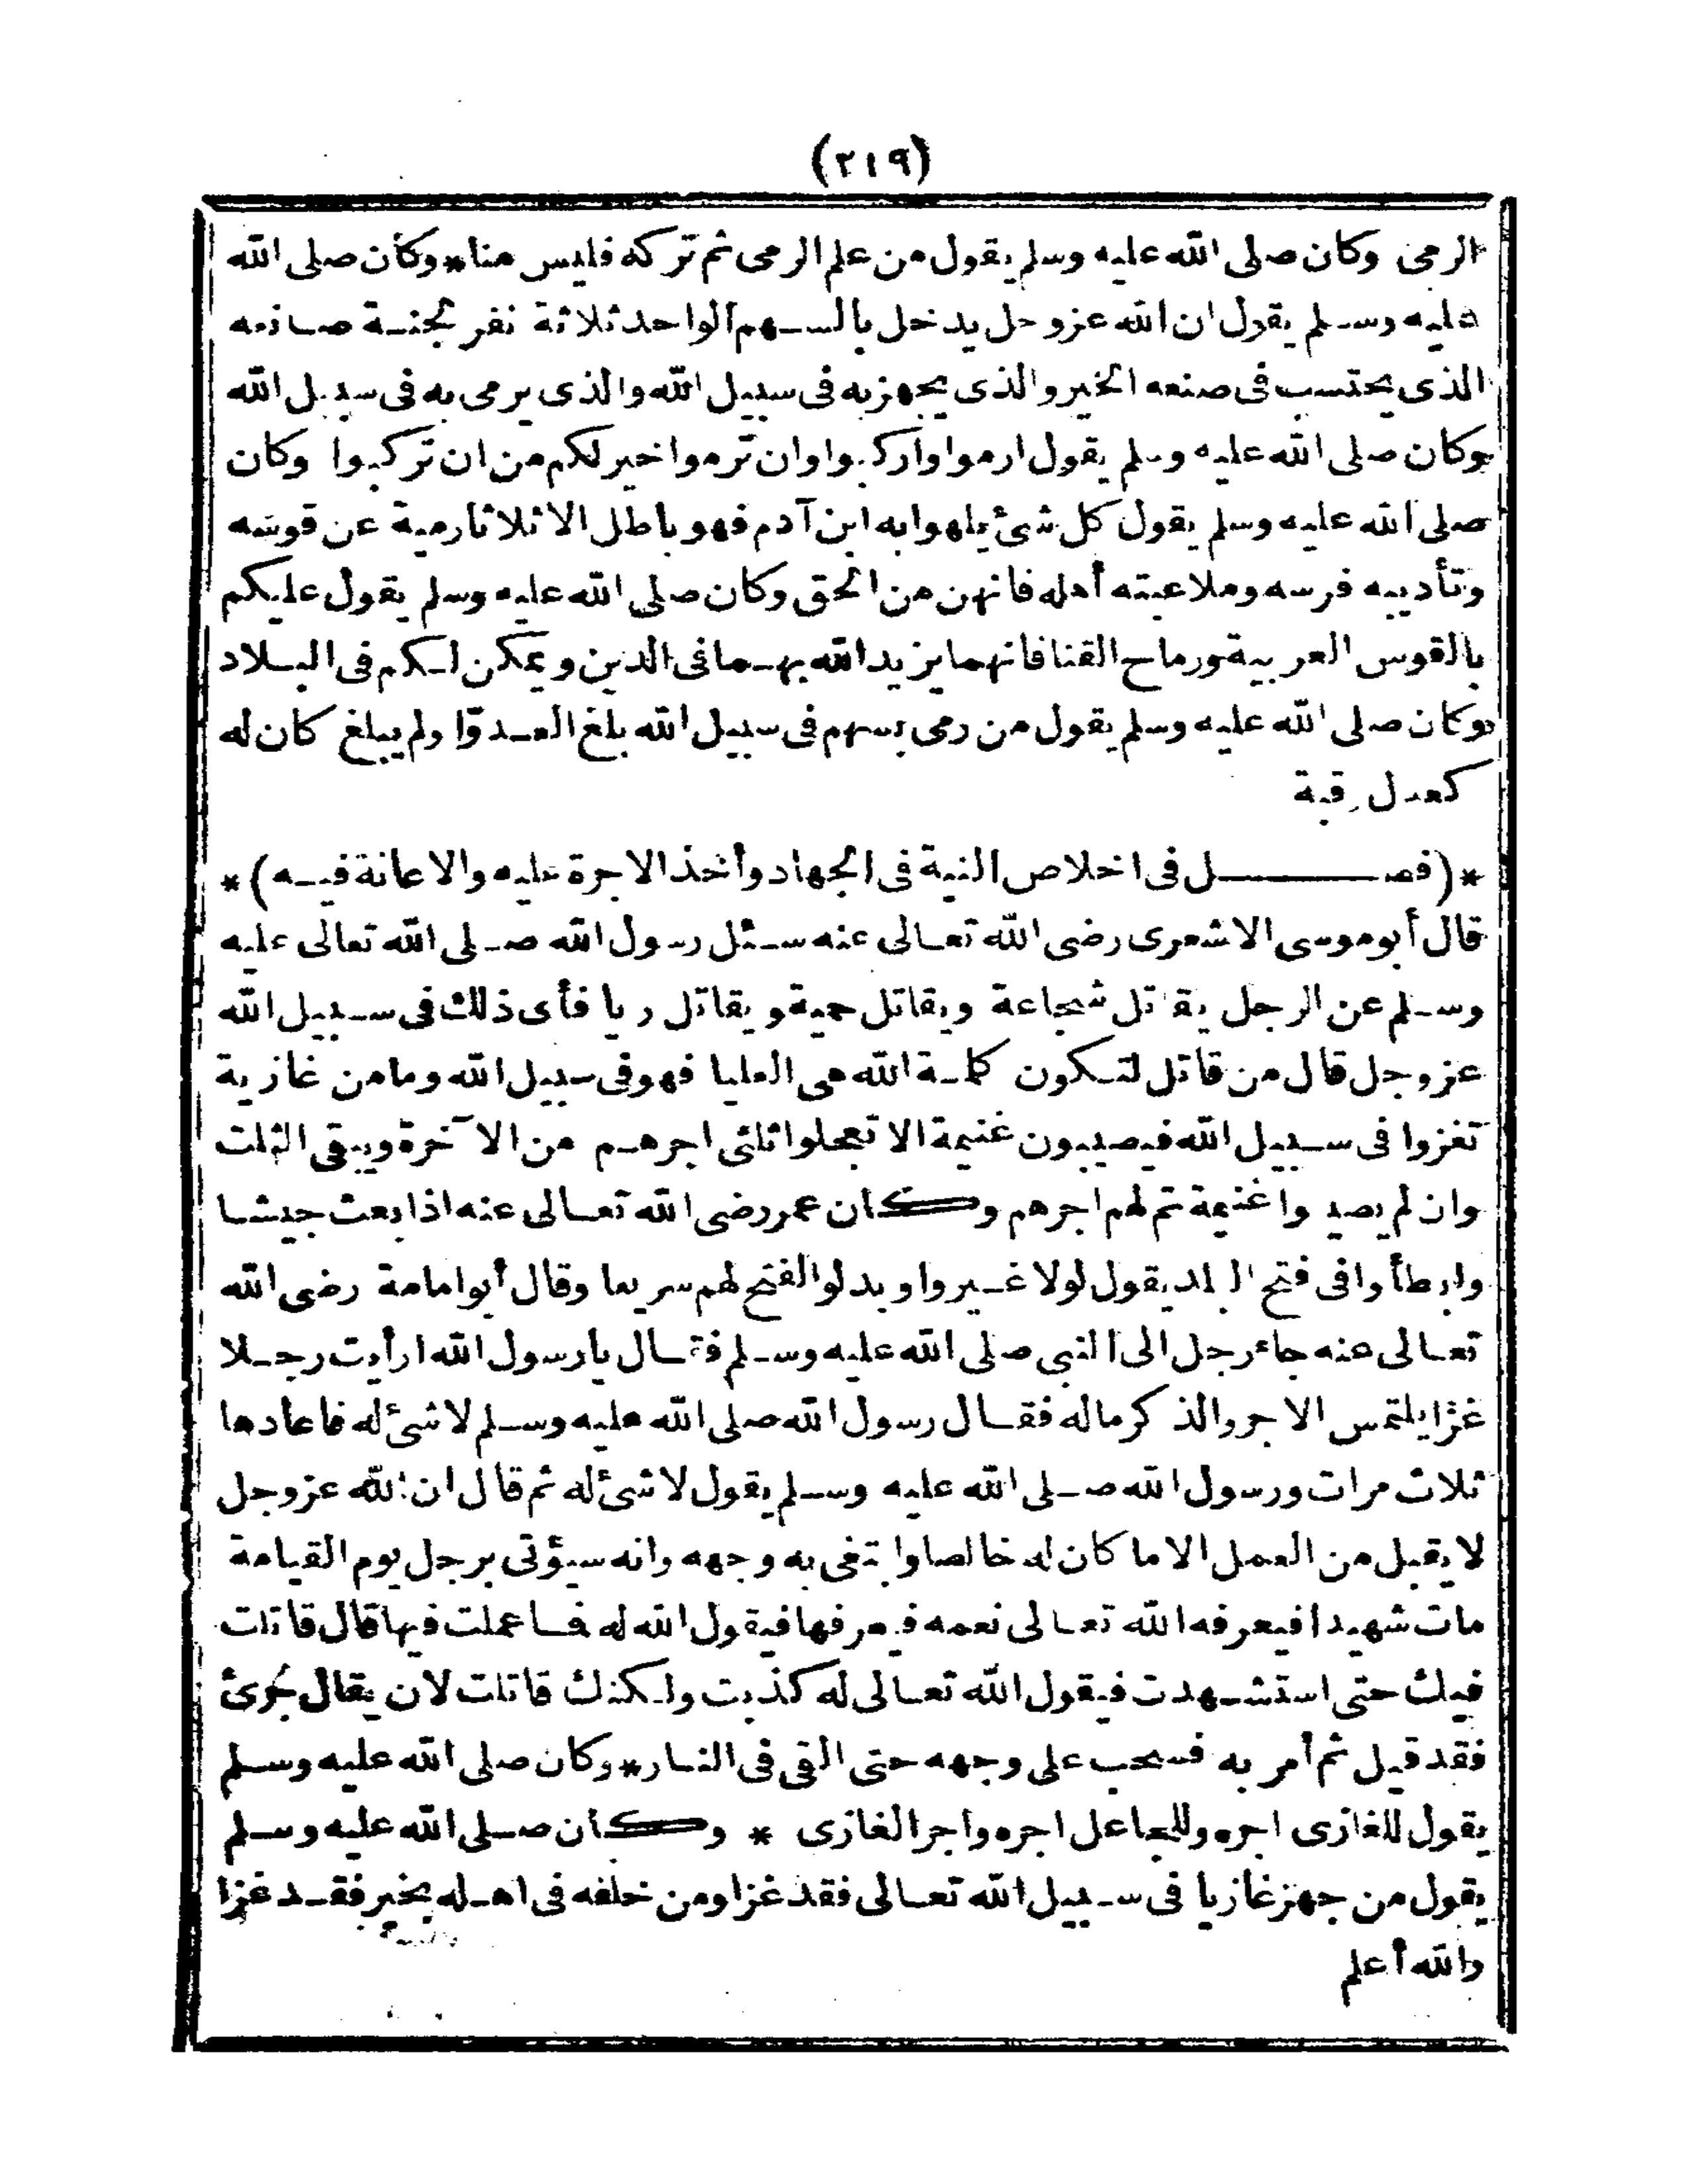 (٢١٩)
الرمى وكان صلى الله عليه وسلم يقول من علم الرمى ثم تركه فليس منا * وكان صلى الله
عليه وسلم يقول ان الله عز وجل يدخل بالسهم الواحد ثلاثة نفر الجنة صانعه
الذى يحتسب فى صنعه الخير والذى يجهز به فى سبيل الله والذى يرمى به فى سبيل الله
وكان صلى الله عليه وسلم يقول ارموا واركبوا وان ترموا خير لكم من ان تركبوا وكان
صلى الله عليه وسلم يقول كل شئ يلهوا به ابن آدم فهو باطل الا ثلاثا رمية عن قوسه
وتأديبه فرسه وملاعبته أهله فانهن من الحق وكان صلى الله عليه وسلم يقول عليكم
بالقوس العربية ورماح القنا فانهما يزيد الله بهما فى الدين ويمكن لكم فى البلاد
وكان صلى الله عليه وسلم يقول من رمى بسهم فى سبيل الله بلغ العدوّ ا ولم يبلغ كان له
كعدل رقبة
* (فصل فى اخلاص النية فى الجهاد وأخذ الاجرة عليه والاعانة فيه) *
قال أبو موسى الاشعرى رضى الله تعالى عنه سئل رسول الله صلى الله تعالى عليه
وسلم عن الرجل يقاتل شجاعة ويقاتل حمية ويقاتل ريا فأى ذلك فى سبيل الله
عز وجل قال من قاتل لتكون كلمة الله هى العليا فهو فى سبيل الله وما من غازية
تغزوا فى سبيل الله فيصيبون غنيمة الا تعجلوا ثلثى اجرهم من الآخرة ويبقى الثلث
وان لم يصيبوا غنيمة تم لهم اجرهم وكان عمر رضى الله تعالى عنه اذا بعث جيشا
وابطأوا فى فتح البلد يقول لولا غيروا وبدلوا لفتح لهم سريعا وقال أبوامامة رضى الله
تعالى عنه جاء رجل الى النبى صلى الله عليه وسلم فقال يا رسول الله ارأيت رجلا
غزا يلتمس الاجر والذكر ماله فقال رسول الله صلى الله عليه وسلم لا شئ له فاعادها
ثلاث مرات ورسول الله صلى الله عليه وسلم يقول لا شئ له ثم قال ان الله عز وجل
لا يقبل من العمل الا ما كان له خالصا وابتغى به وجهه وانه سيؤتى برجل يوم القيامة
مات شهيدا فيعرفه الله تعالى نعمه فيعرفها فيقول الله له فما عملت فيها قال قاتلت
فيك حتى استشهدت فيقول الله تعالى له كذبت ولكنك قاتلت لان يقال جُرئ
فقد قيل ثم أمر به فسحب على وجهه حتى القى فى النار * وكان صلى الله عليه وسلم
يقول للغازى اجره وللجاعل اجره واجر الغازى * وكان صلى الله عليه وسلم
يقول من جهز غازيا فى سبيل الله تعالى فقد غزا ومن خلفه فى اهله بخير فقد غزا
والله أعلم